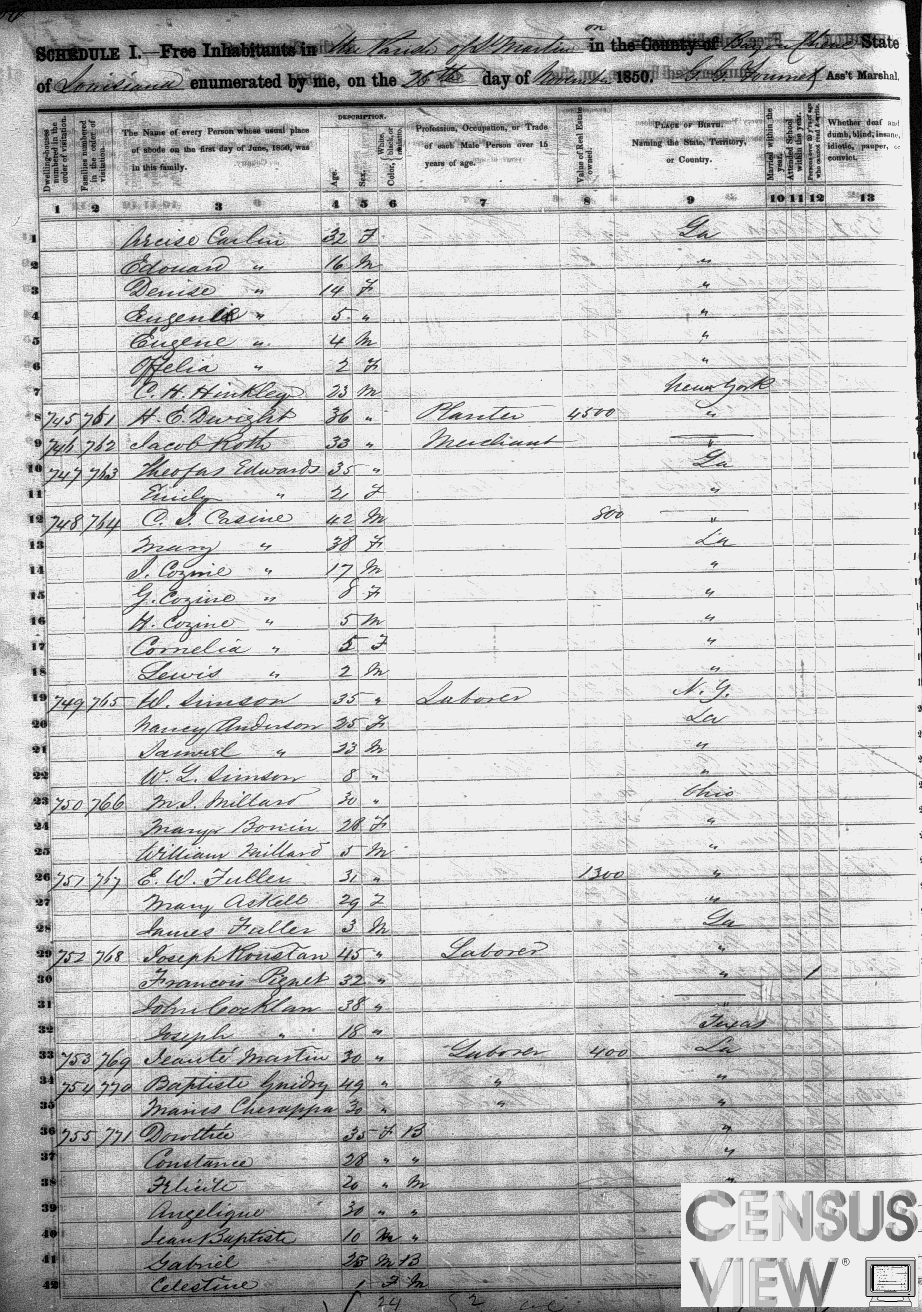 SCHEDULE I.—Free Inhabitants in the Parish of St Martin on in the County of State
of Louisiana enumerated by me, on the 26th day of November 1850. Ass't Marshal.
Dwelling-houses numbered in the order of visitation.
Families numbered in the order of visitation.
The Name of every Person whose usual place of abode on the first day of June, 1850, was in this family.
DESCRIPTION.
Age.
Sex.
Color, White, black, or mulatto.
Profession, Occupation, or Trade of each Male Person over 15 years of age.
Value of Real Estate owned.
PLACE OF BIRTH. Naming the State, Territory, or Country.
Married within the year.
Attended School within the year.
Persons over 20 y'rs of age who cannot read & write.
Whether deaf and dumb, blind, insane, idiotic, pauper, or convict.
1 2 3 4 5 6 7 8 9 10 11 12 13
1 Carlin 32 F La
2 Edouard " 16 M "
3 Denise " 14 F "
4 Eugenie " 5 " "
5 Eugene " 4 M "
6 Offelia " 2 F "
7 C. H. Hinkley 23 M New York
8 745 761 H. C. Dwight 36 " Planter 4500 "
9 746 762 Jacob Roth 33 " Merchant "
10 747 763 Theofas Edwards 35 " La
11 Emily " 21 F "
12 748 764 C. I. Casine 42 M 800 "
13 Mary " 38 F La
14 I. Cozine " 17 M "
15 G. Cozine " 8 F "
16 H. Cozine " 5 M "
17 Cornelia " 5 F "
18 Lewis " 2 M "
19 749 765 W. Simson 35 " Laborer N. Y.
20 Nancy Anderson 25 F La
21 Samuel " 23 M "
22 W. L. Simson 8 " "
23 750 766 M. I. Millard 30 " Ohio
24 Mary Bonin 28 F "
25 William Millard 5 M "
26 751 767 E. W. Fuller 31 " 1300 "
27 Mary Askell 29 F "
28 James Fuller 3 M La
29 752 768 Joseph Roustan 45 " Laborer "
30 Francois 32 " " 1
31 John Cocklan 38 " "
32 Joseph " 18 " Texas
33 753 769 Martin 30 " Laborer 400 La
34 754 770 Baptiste Guidry 49 " " "
35 30 " " "
36 755 771 Dorothée 35 F B "
37 Constance 28 " " "
38 Felicite 20 " M "
39 Angelique 30 " "
40 Jean Baptiste 10 M "
41 Gabriel 28 M B
42 Celestine 1 F M
24
CENSUS
VIEW®